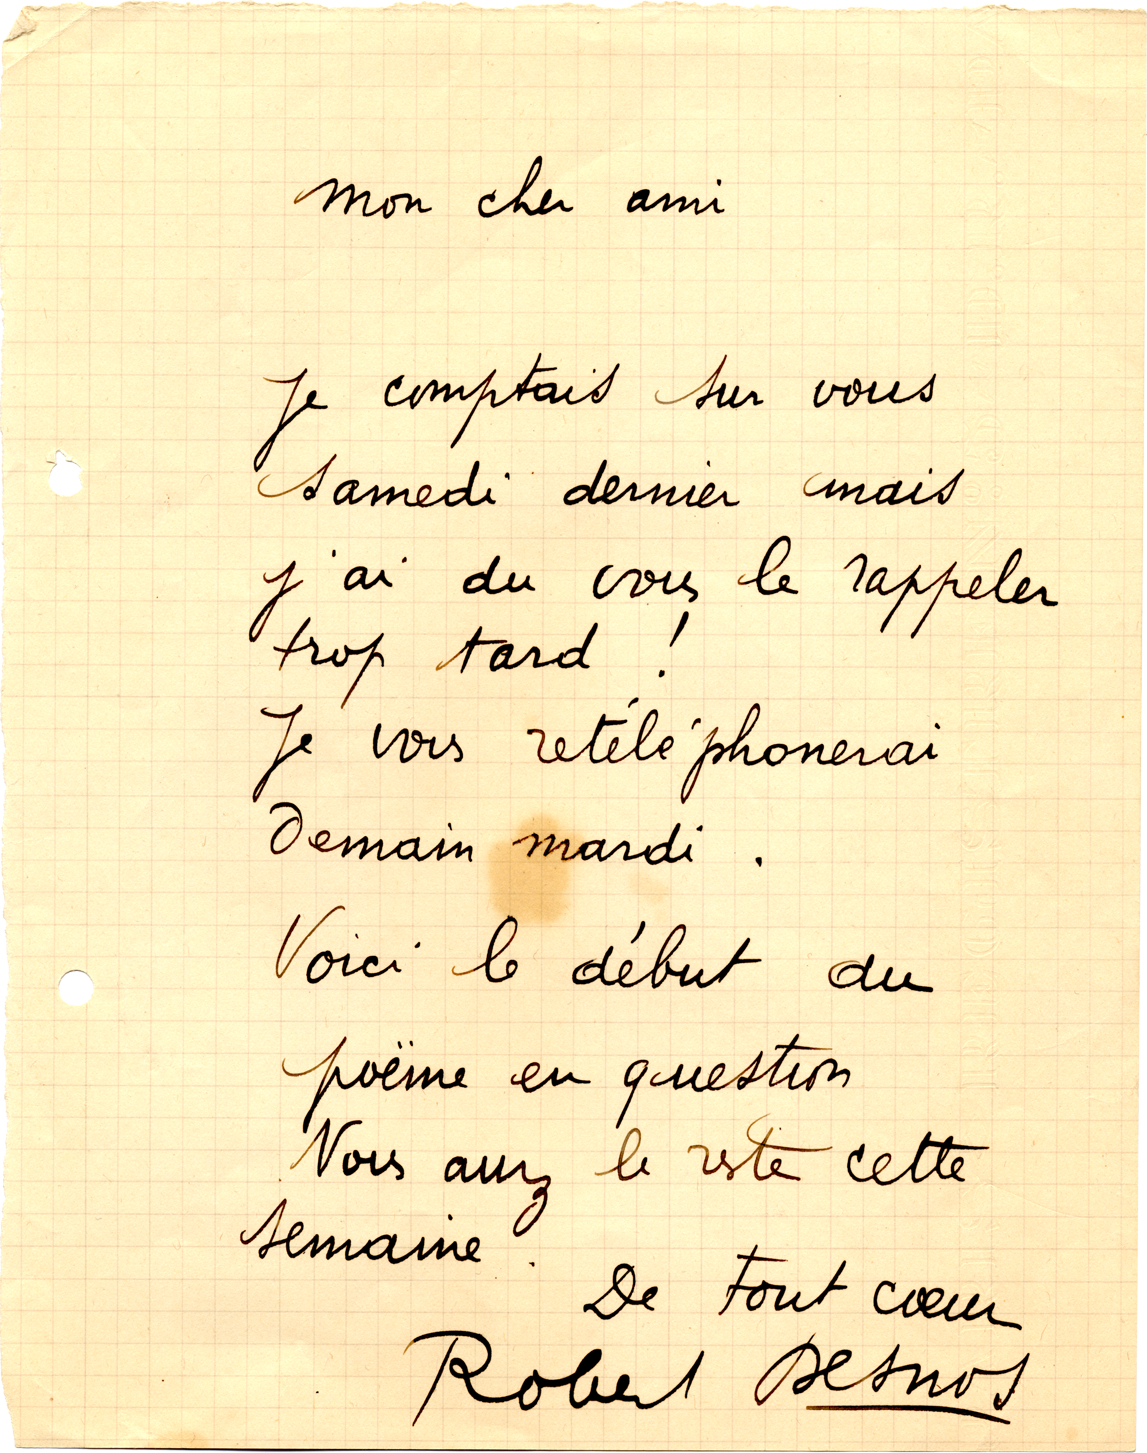 Mon cher ami
Je comptais sur vous
samedi dernier mais
j'ai du vous le rappeler
trop tard !
Je vous retéléphonerai
Demain mardi .
Voici le début du
poëme en question
Vous aurez le reste cette
semaine .
De tout cœur
Robert Desnos